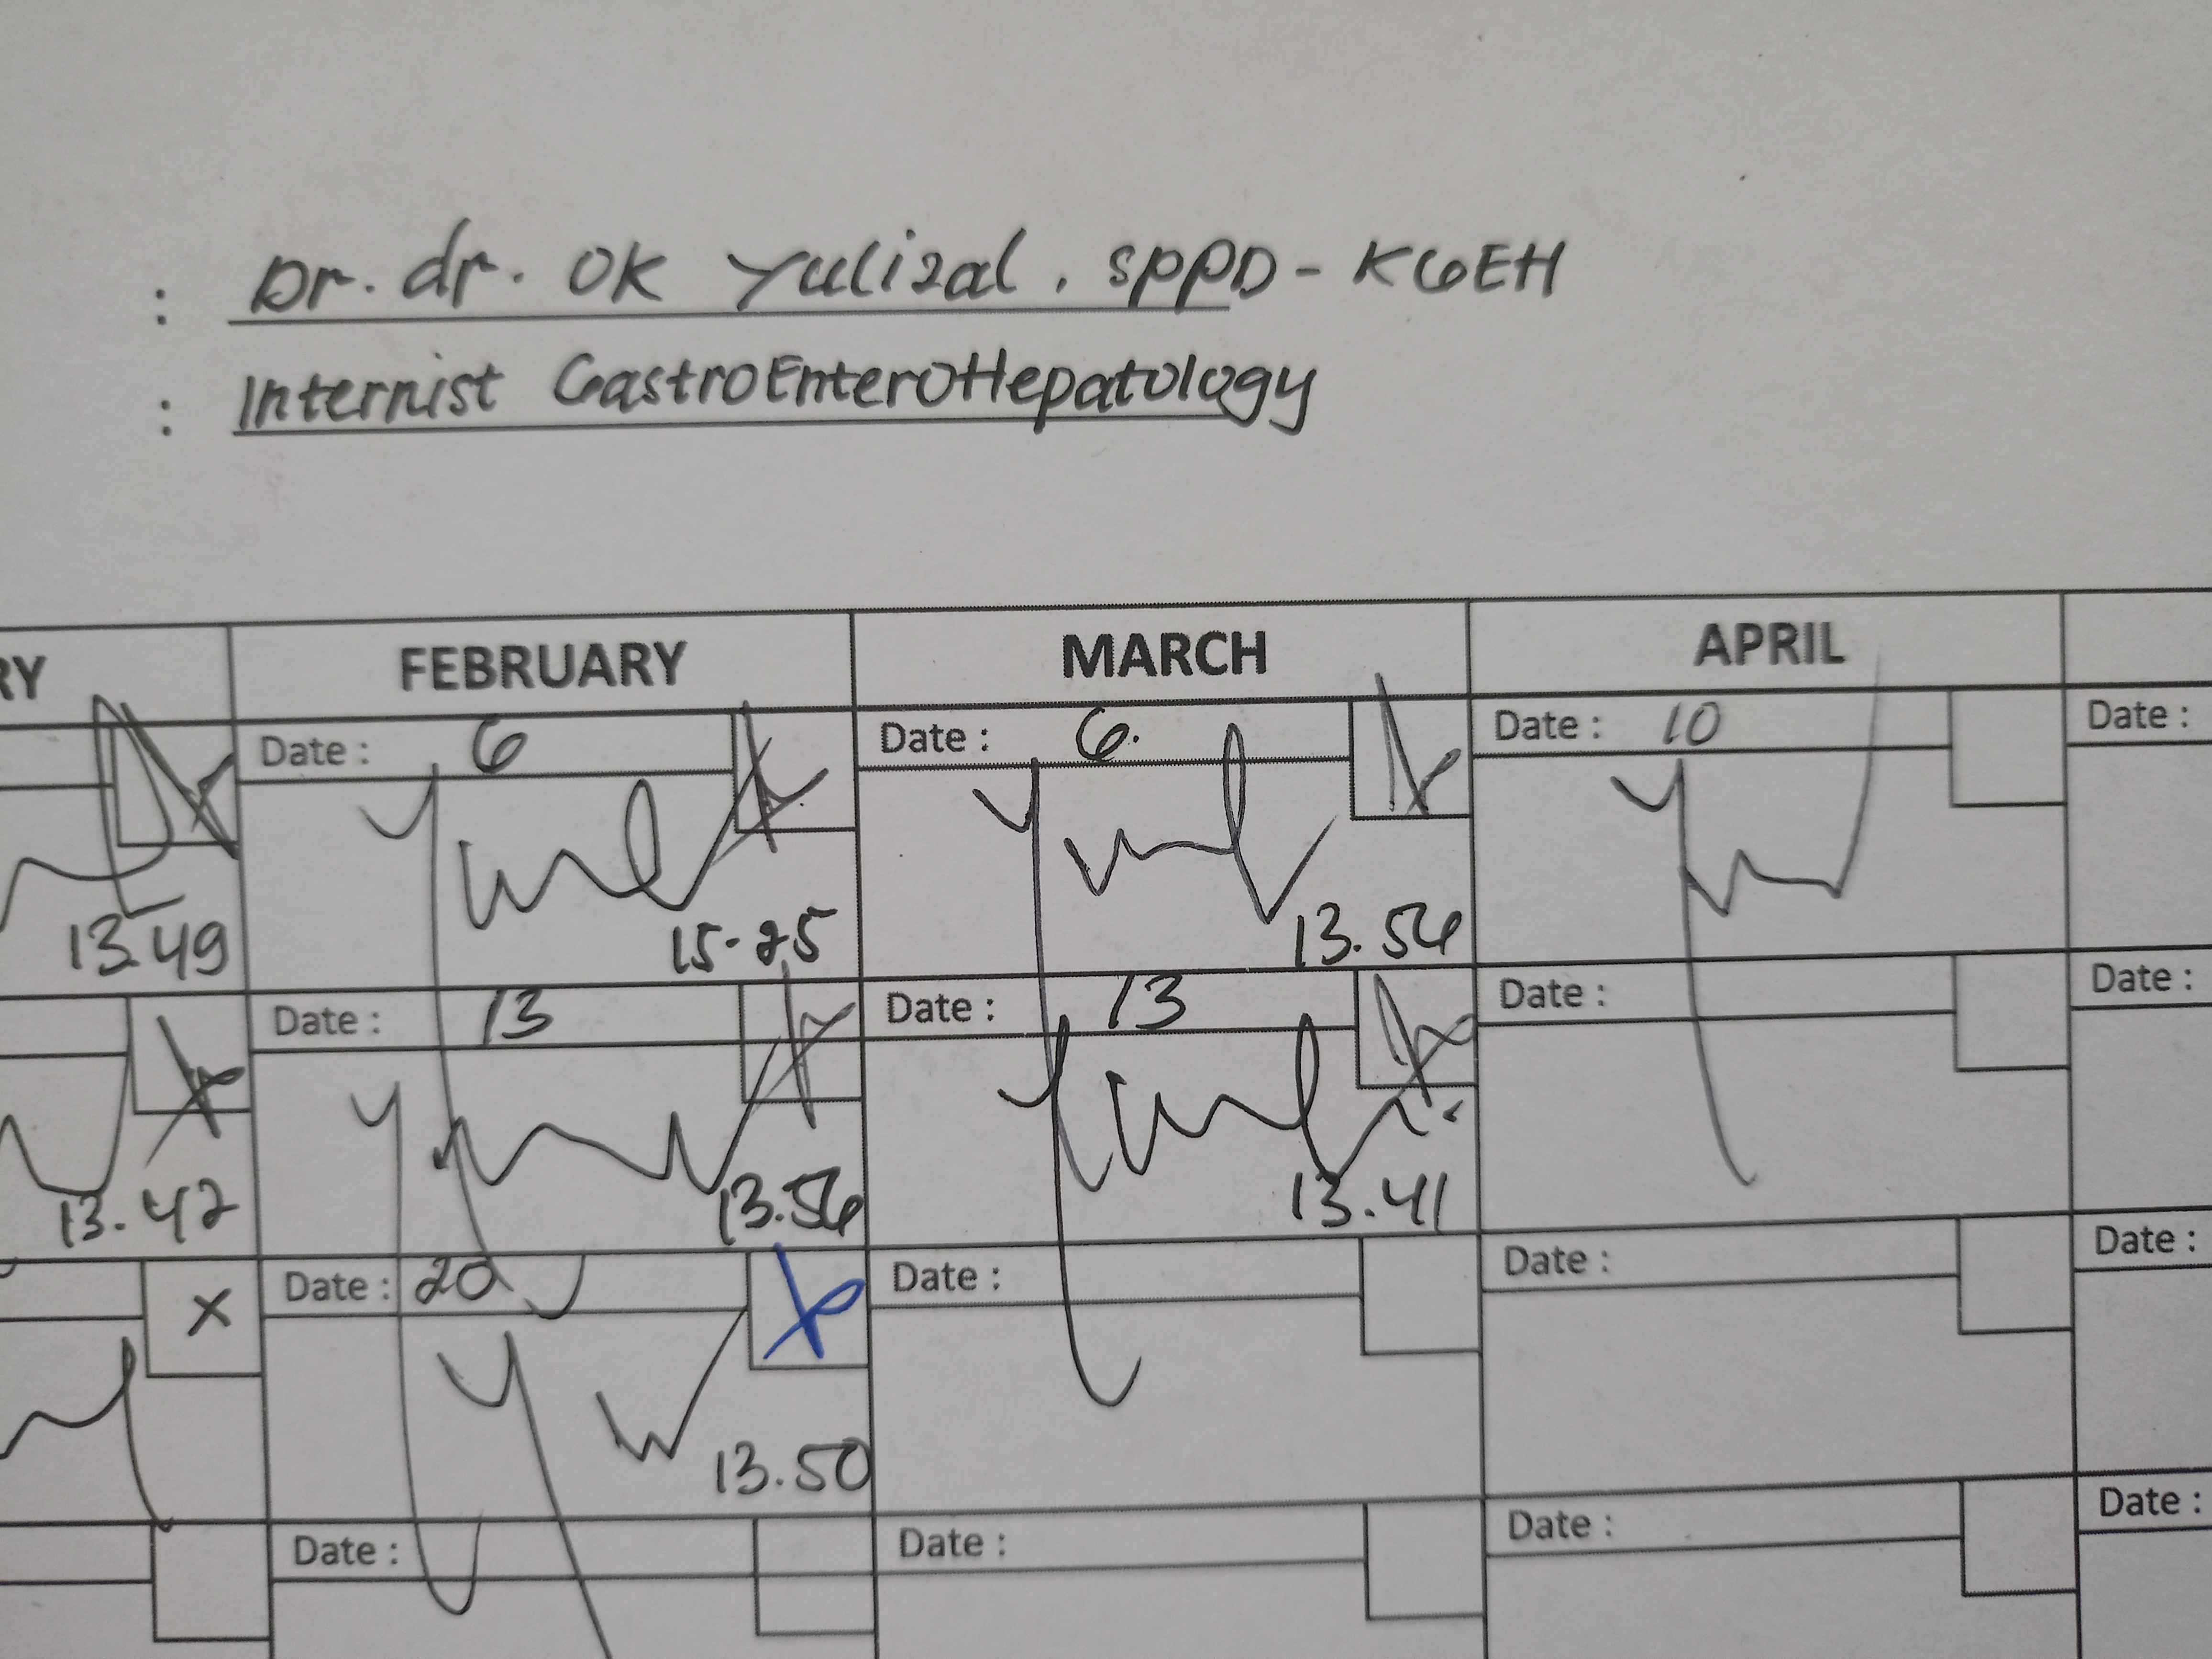 : Dr. dr. OK Yulizal, SpPD - KGEH
: Internist GastroEnteroHepatology
RY FEBRUARY MARCH APRIL
Date : 6 Date : 6. Date : 10 Date :
13.49 15.25 13.56
Date : 13 Date : 13 Date : Date :
13.42 13.56 13.41
Date : 20 Date : Date : Date :
13.50
Date : Date : Date : Date :